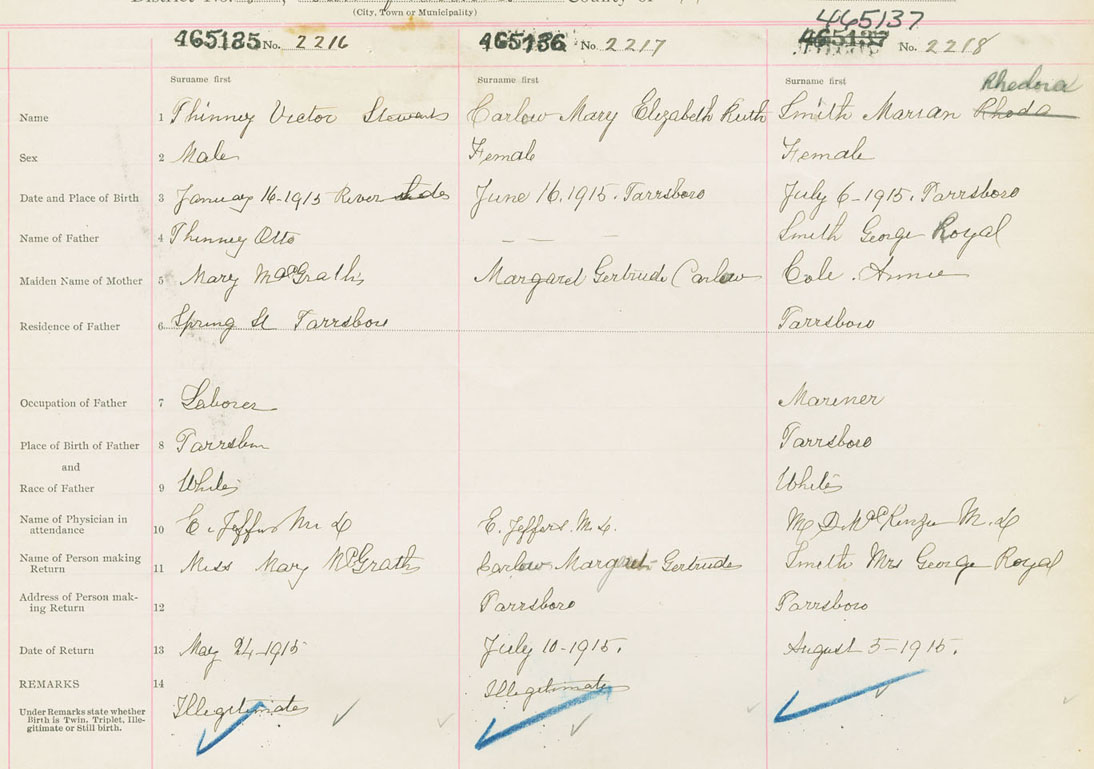 District No. County of
(City, Town or Municipality)
465135 No. 2216
465136 No. 2217
465137
465137 No. 2218
Surname first
Surname first
Surname first
Rhedora
Name 1 Phinney Victor Stewart Carlow Mary Elizabeth Ruth Smith Marian Rhoda
Sex 2 Male Female Female
Date and Place of Birth 3 January 16-1915 River June 16, 1915. Parrsboro July 6-1915. Parrsboro
Name of Father 4 Phinney Otto — — — Smith George Royal
Maiden Name of Mother 5 Mary McGrath Margaret Gertrude Carlow Cole. Annie
Residence of Father 6 Spring St Parrsboro Parrsboro
Occupation of Father 7 Laborer Mariner
Place of Birth of Father 8 Parrsboro Parrsboro
and
Race of Father 9 White White
Name of Physician in attendance 10 E. Jeffers M.D E. Jeffers. M.D. M. D. McKenzie M.D
Name of Person making Return 11 Miss Mary McGrath Carlow Margaret Gertrude Smith Mrs George Royal
Address of Person making Return 12 Parrsboro Parrsboro
Date of Return 13 May 24-1915 July 10-1915. August 5-1915.
REMARKS 14 Illegitimate
Under Remarks state whether
Birth is Twin, Triplet, Ille-
gitimate or Still birth.
Illegitimate